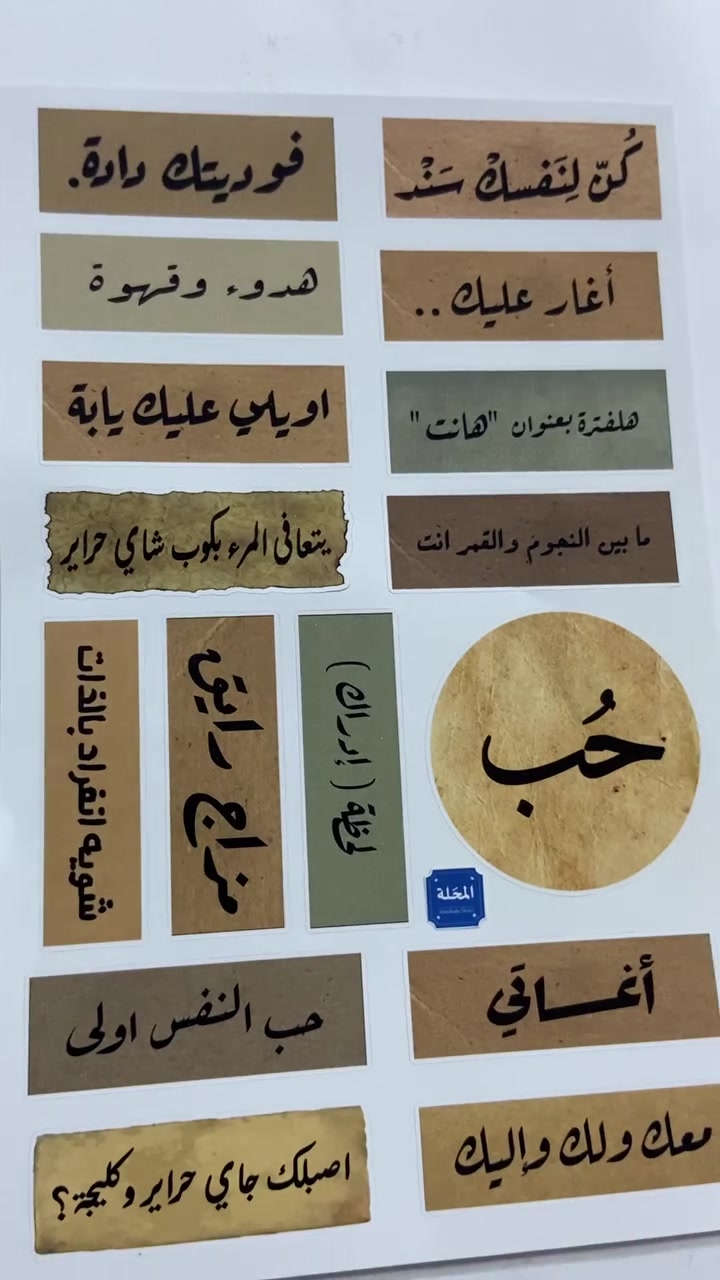 كُنّ لِنَفسكْ سَنْد
فوديتك دادة.
أغار عليك ..
هدوء وقهوة
هلفترة بعنوان "هانت"
اويلي عليك يابة
ما بين النجوم والقمر انت
يتعافى المرء بكوب شاي حراير
حُب
لحظة ( إدراك )
مزاج رايق
شويه انفراد بالذات
المحَلة
أغساقي
حب النفس اولى
معك ولك وإليك
اصبلك جاي حراير وكليجة؟